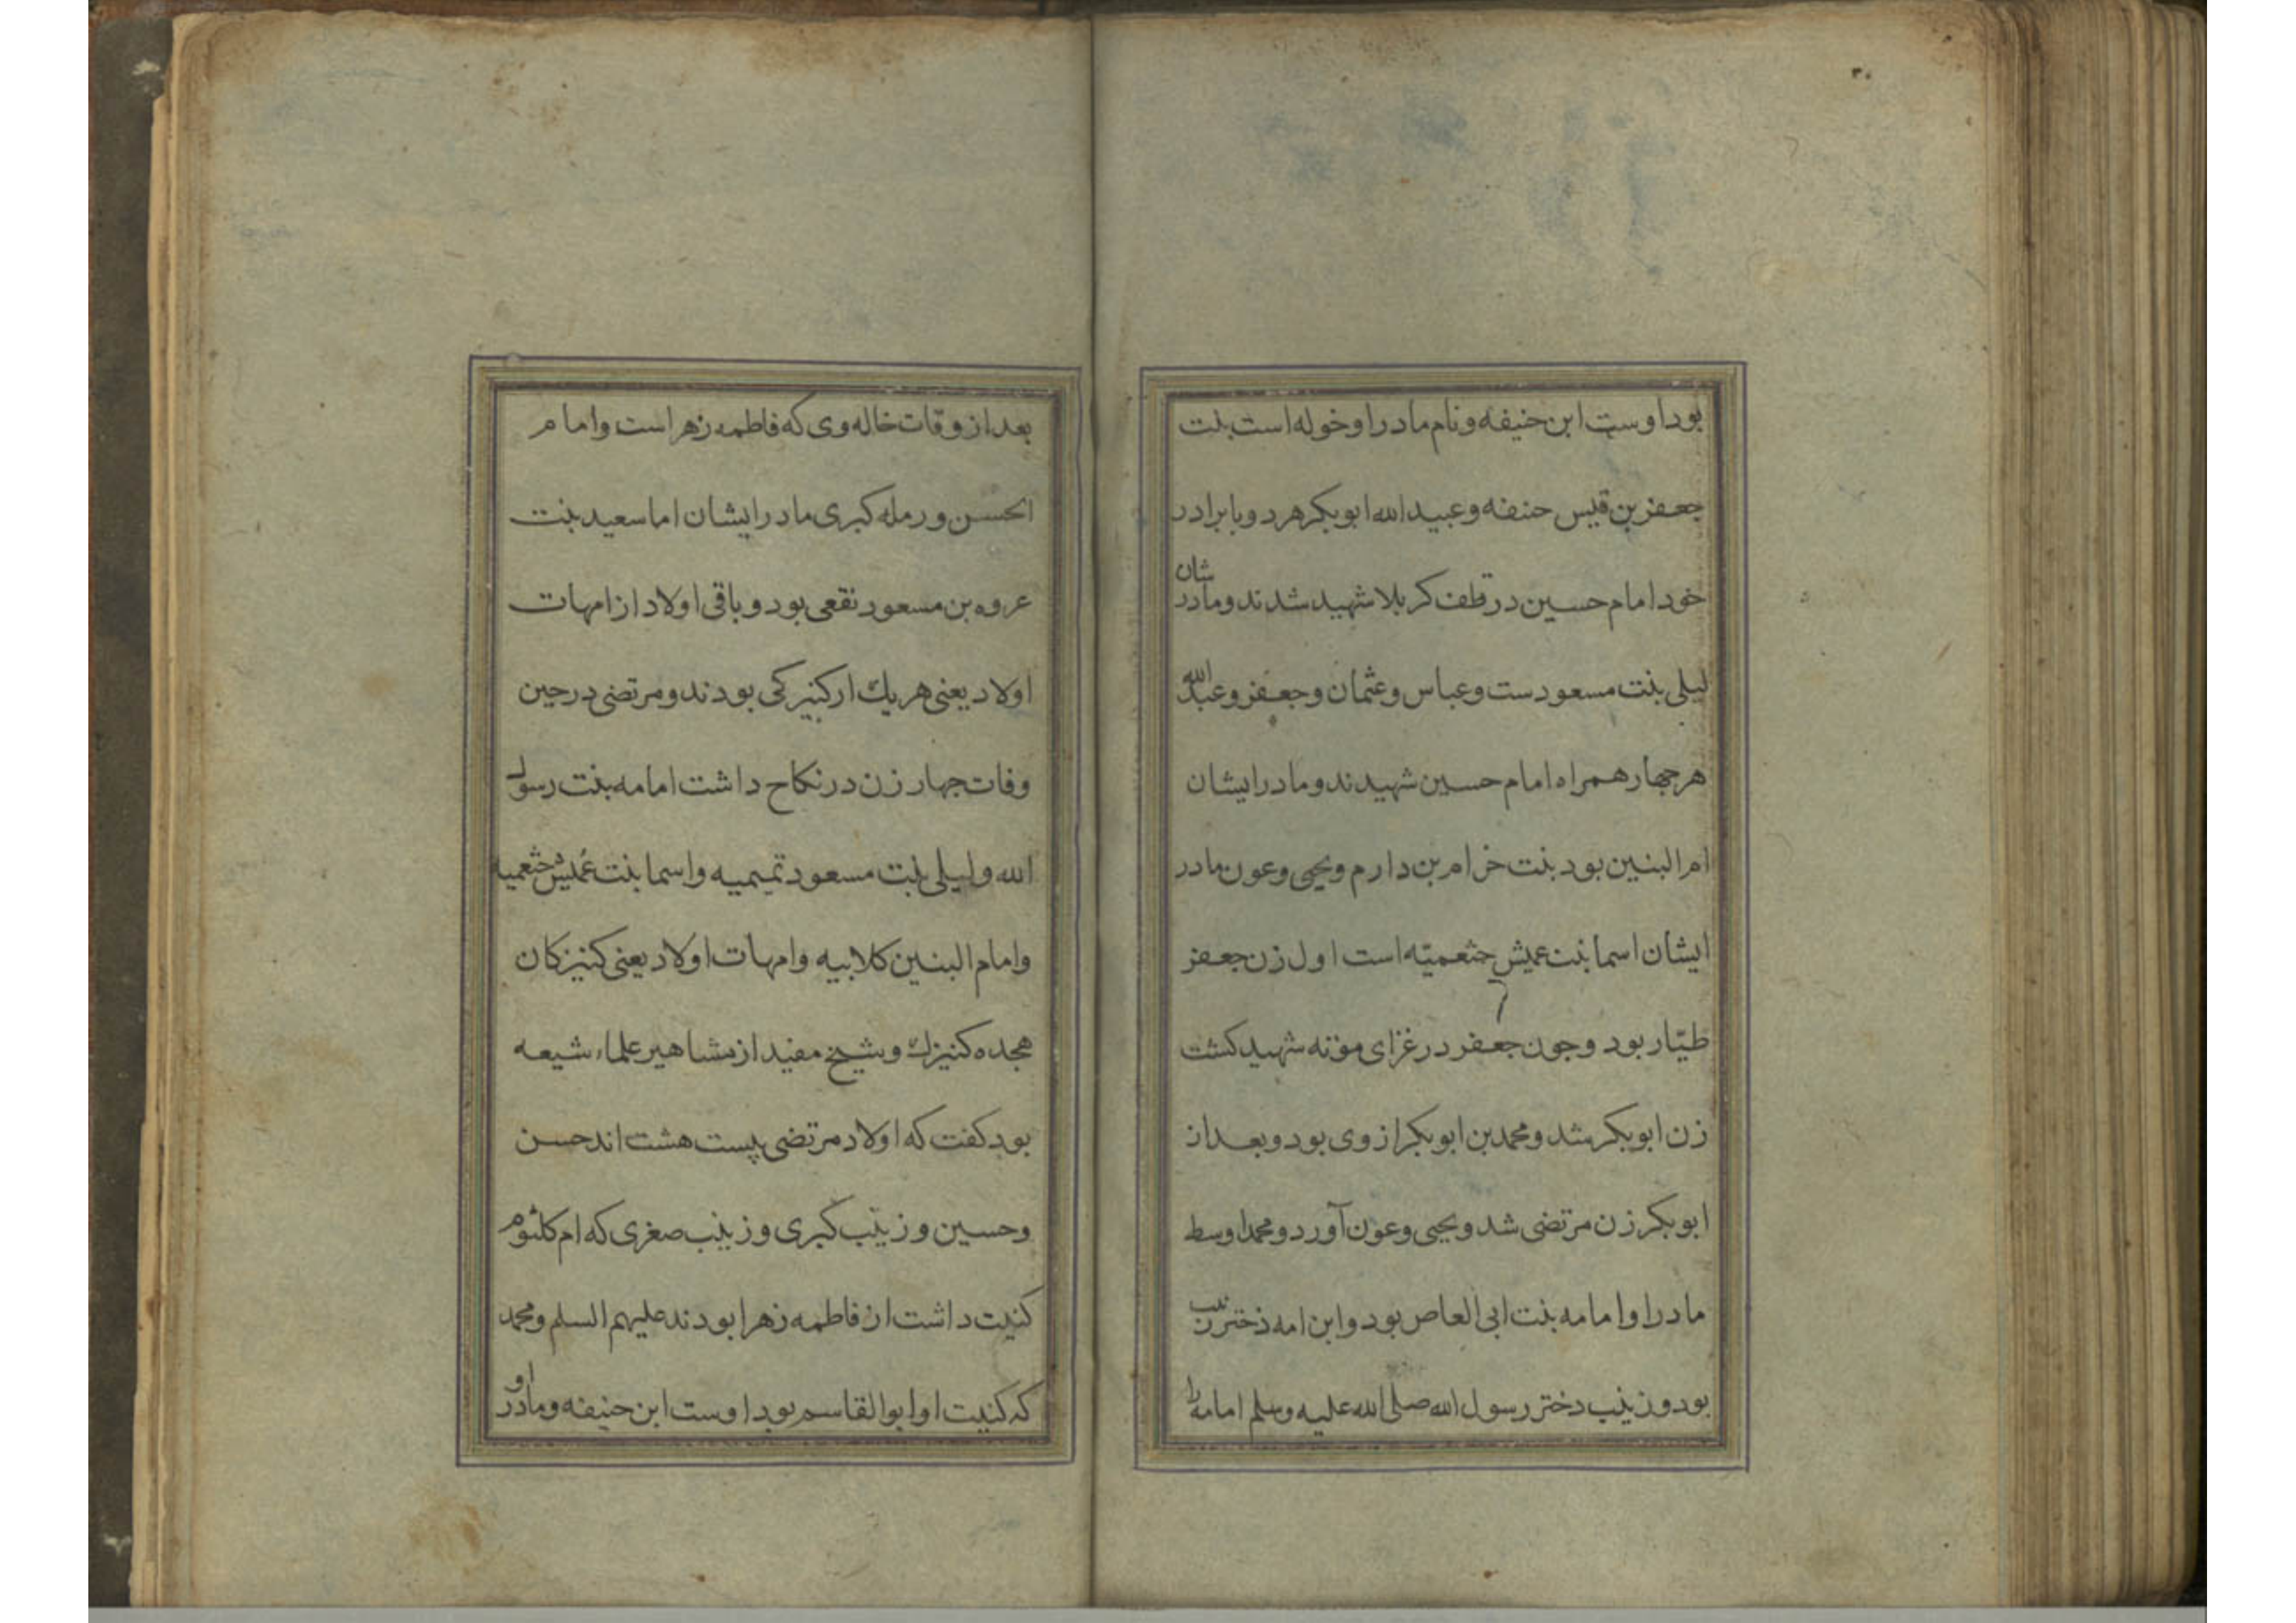 ۳۰
بود اوست ابن حنیفه و نام مادر او خوله است بنت
جعفر بن قیس حنفه و عبید الله ابوبکر هر دو با برادر
خود امام حسین در قطف کربلا شهید شدند و مادرشان
لیلی بنت مسعودست و عباس و عثمان و جعفر و عبدالله
هر جهار همراه امام حسین شهیدند و مادر ایشان
ام البنین بود بنت خرام بن دارم و یحیی و عون مادر
ایشان اسما بنت عمیش جثعمیّه است اول زن جعفر
طیّار بود و جون جعفر در غزای موٴته شهید کشت
زن ابوبکر شد و محمد بن ابوبکر از وی بود و بعد از
ابوبکر زن مرتضی شد و یحیی و عون آورد و محمد اوسط
مادر او امامه بنت ابی العاص بود و ابن امه دختر زینب
بود و زینب دختر رسول الله صلی الله علیه وسلم امامه را
بعد از وفات خاله وی که فاطمه زهر است و امام
الحسن و رمله کبری مادر ایشان اما سعید بنت
عروه بن مسعود نقعی بود و باقی اولاد از امهات
اولاد یعنی هر یك ار کنیزکی بودند و مرتضی در حین
وفات جهار زن در نکاح داشت امامه بنت رسول
الله و لیلی بنت مسعود تمیمیه و اسما بنت عُمیش خثعمیه
و امام البنین کلابیه و امهات اولاد یعنی کنیزکان
هجده کنیزك و شیخ مفید از مشاهیر علماء شیعه
بود کفت که اولاد مرتضی بیست هشت اند حسن
و حسین و زینب کبری و زینب صغری که ام کلثوم
کنیت داشت از فاطمه زهرا بودند علیهم السلم و محمد
که کنیت او ابوالقاسم بود اوست ابن حنیفه و مادر او